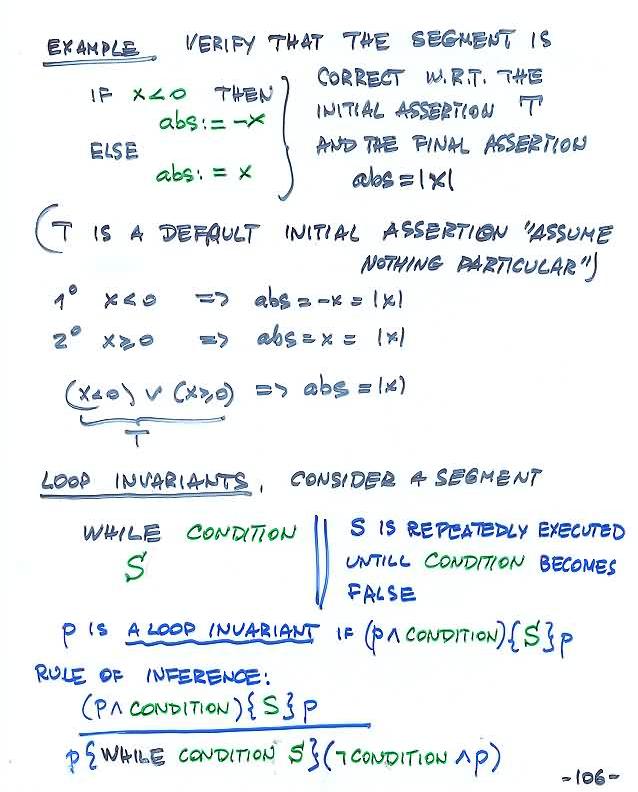 EXAMPLE VERIFY THAT THE SEGMENT IS
IF x<0 THEN
abs:= -x
ELSE
abs:= x
CORRECT W.R.T. THE
INITIAL ASSERTION T
AND THE FINAL ASSERTION
abs=|x|
(T IS A DEFAULT INITIAL ASSERTION "ASSUME
NOTHING PARTICULAR")
1° x<0 => abs=-x=|x|
2° x≥0 => abs=x=|x|
(x<0) ∨ (x≥0) => abs=|x|
T
LOOP INVARIANTS, CONSIDER A SEGMENT
WHILE CONDITION
S
S IS REPEATEDLY EXECUTED
UNTILL CONDITION BECOMES
FALSE
p IS A LOOP INVARIANT IF (p∧CONDITION){S}p
RULE OF INFERENCE:
(p∧CONDITION){S}p
p{WHILE CONDITION S}(¬CONDITION∧p)
-106-